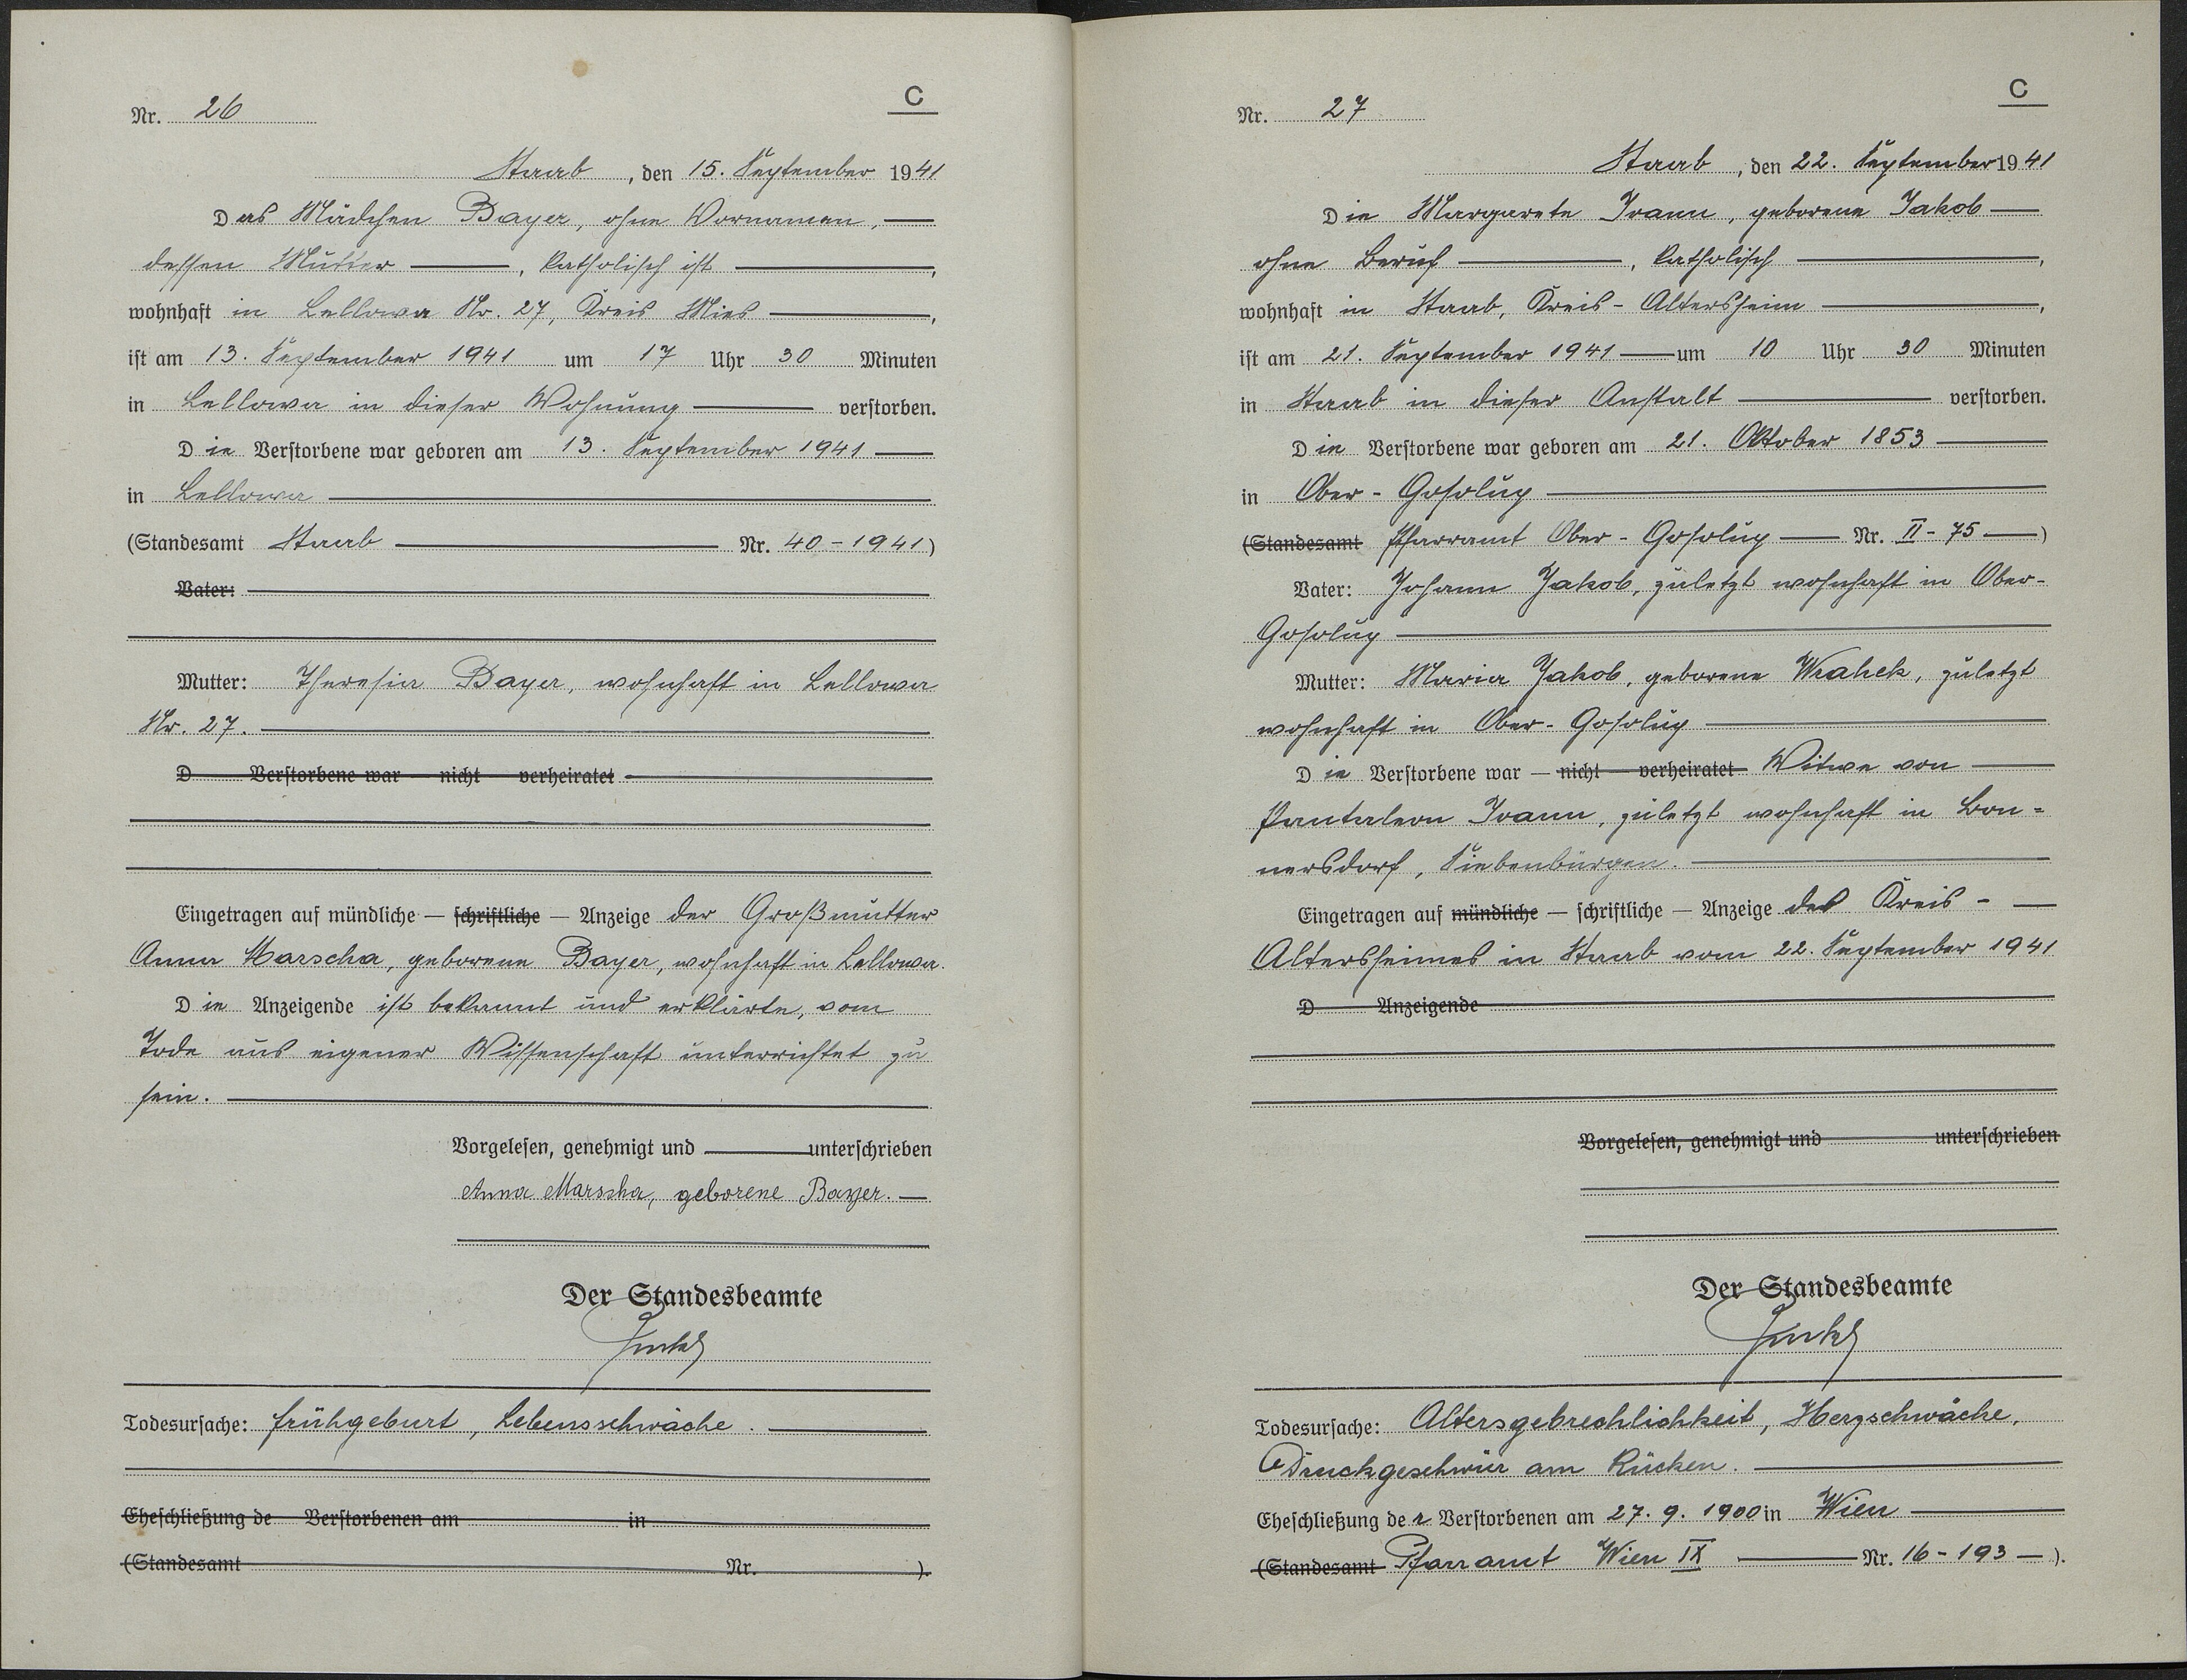 C
Nr. 26
Staab, den 15. September 1941
Das Mädchen Bayer, ohne Vornamen,
dessen Mutter, katholisch ist,
wohnhaft in Lellowa Nr. 27, Kreis Mies,
ist am 13. September 1941 um 17 Uhr 30 Minuten
in Lellowa in dieser Wohnung verstorben.
Die Verstorbene war geboren am 13. September 1941
in Lellowa
(Standesamt Staab Nr. 40-1941)
Vater:
Mutter: Theresia Bayer, wohnhaft in Lellowa
Nr. 27.
D Verstorbene war nicht verheiratet
Eingetragen auf mündliche — schriftliche — Anzeige der Großmutter
Anna Marscha, geborene Bayer, wohnhaft in Lellowa.
Die Anzeigende ist bekannt und erklärte, vom
Tode aus eigener Wissenschaft unterrichtet zu
sein.
Vorgelesen, genehmigt und unterschrieben
Anna Marscha, geborene Bayer.
Der Standesbeamte
Todesursache: Frühgeburt, Lebensschwäche.
Eheschließung de Verstorbenen am in
(Standesamt Nr. ).
C
Nr. 27
Staab, den 22. September 1941
Die Margarete Ivann, geborene Jakob
ohne Beruf, katholisch,
wohnhaft in Staab, Kreis-Altersheim,
ist am 21. September 1941 um 10 Uhr 30 Minuten
in Staab in dieser Anstalt verstorben.
Die Verstorbene war geboren am 21. Oktober 1853
in Ober-Gosolup
(Standesamt Pfarramt Ober-Gosolup Nr. II-75)
Vater: Johann Jakob, zuletzt wohnhaft in Ober-
Gosolup
Mutter: Maria Jakob, geborene Wrahek, zuletzt
wohnhaft in Ober-Gosolup
Die Verstorbene war — nicht — verheiratet Witwe von
Pantaleon Ivann, zuletzt wohnhaft in Bon=
nersdorf, Siebenbürgen.
Eingetragen auf mündliche — schriftliche — Anzeige des Kreis-
Altersheimes in Staab vom 22. September 1941
D Anzeigende
Vorgelesen, genehmigt und unterschrieben
Der Standesbeamte
Todesursache: Altersgebrechlichkeit, Herzschwäche,
Druckgeschwür am Rücken.
Eheschließung der Verstorbenen am 27. 9. 1900 in Wien
(Standesamt Pfarramt Wien IX Nr. 16-193).